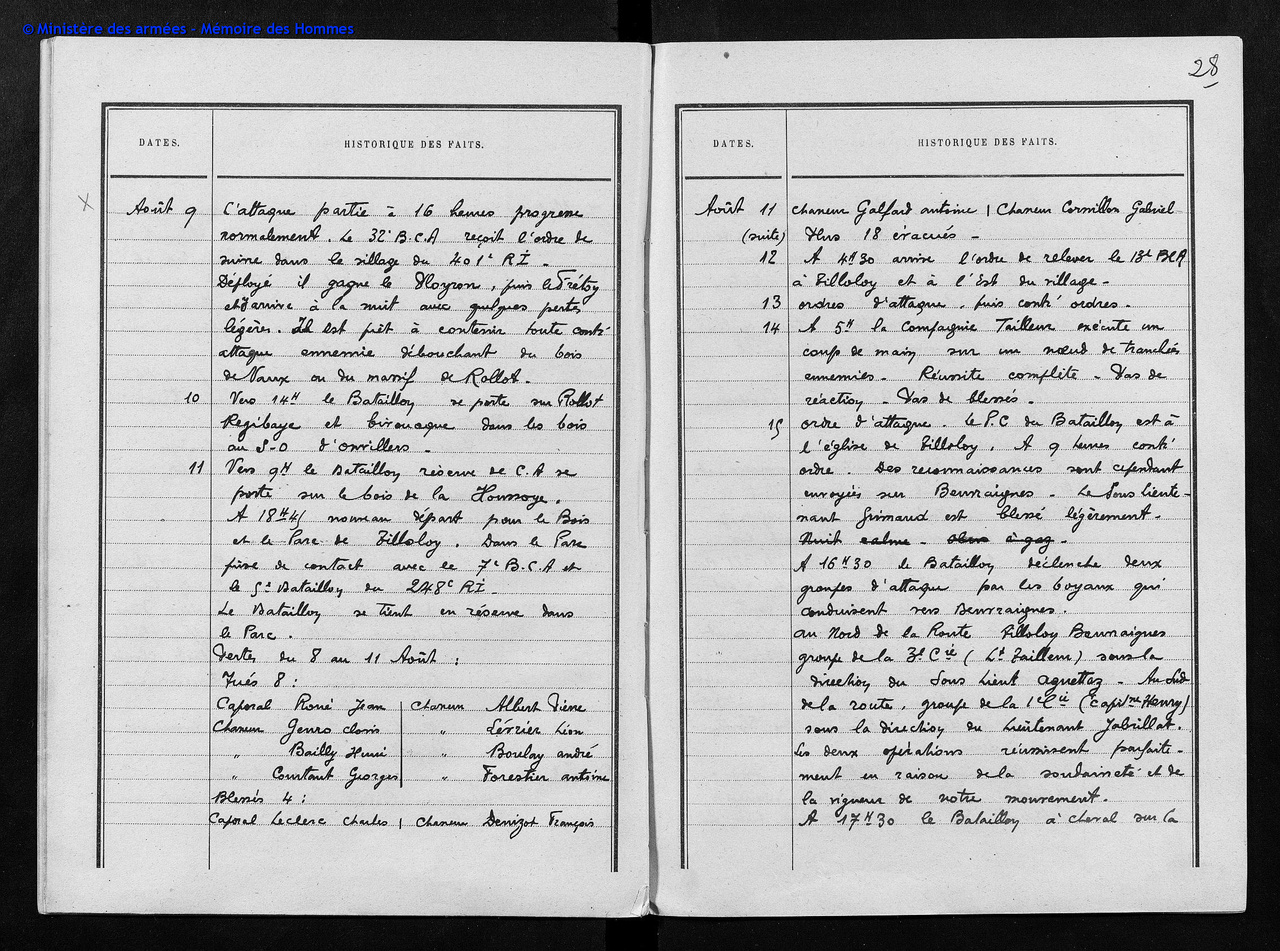 © Ministère des armées - Mémoire des Hommes
28
DATES. HISTORIQUE DES FAITS.
Août 9 L'attaque partie à 16 heures progresse
normalement. Le 32e B.C.A reçoit l'ordre de
suivre dans le sillage du 401e RI.
Déployé il gagne le Ployron, puis le Frétoy
et arrive à la nuit avec quelques pertes
légères. Il est prêt à contenir toute contre
attaque ennemie débouchant du bois
de Vaux ou du massif de Rollot.
10 Vers 14H le Bataillon se porte sur Rollot
Regibaye et bivouaque dans les bois
au S-O d'orvillers.
11 Vers 9H le Bataillon réserve de C.A se
porte sur le bois de la Houssoye.
A 18H45 nouveau départ pour le Bois
et le Parc de Tilloloy. Dans le Parc
prise de contact avec le 7e B.C.A et
le 5e Bataillon du 248e RI.
Le Bataillon se tient en réserve dans
le Parc.
Pertes du 8 au 11 Août :
Tués 8 :
Caporal Roné Jean | Chasseur Albert Pierre
Chasseur Genro clovis | " Lévrier Léon
" Bailly Henri | " Boulay andré
" Constant Georges | " Forestier antoine
Blessés 4 :
Caporal Leclerc Charles | Chasseur Denizot François
DATES. HISTORIQUE DES FAITS.
Août 11 chasseur Galfard antoine | Chasseur Cornillon Gabriel
(suite) Plus 18 évacués -
12 A 4H30 arrive l'ordre de relever le 13e BCA
à Tilloloy et à l'Est du village.
13 ordres d'attaque, puis contre ordres.
14 A 5H la Compagnie Tailleur exécute un
coup de main sur un nœud de tranchées
ennemies. Réussite complète - Pas de
réaction - Pas de blessés.
15 ordre d'attaque. Le P.C du Bataillon est à
l'église de Tilloloy. A 9 heures contre
ordre. Des reconnaissances sont cependant
envoyées sur Beuvraignes - Le Sous lieute-
nant Grimaud est blessé légèrement.
Nuit calme - Obus à gaz -
A 16H30 le Bataillon déclenche deux
groupes d'attaque par les boyaux qui
conduisent vers Beuvraignes.
au Nord de la Route Tilloloy Beuvraignes
groupe de la 3e Cie (Lt Tailleur) sous la
direction du Sous Lieut agnettaz - Au Sud
de la route, groupe de la 1e Cie (Capitne Henry)
sous la direction du Lieutenant Jabrillat.
Les deux opérations réussissent parfaite-
ment en raison de la soudaineté et de
la vigueur de notre mouvement.
A 17H30 le Bataillon à cheval sur la